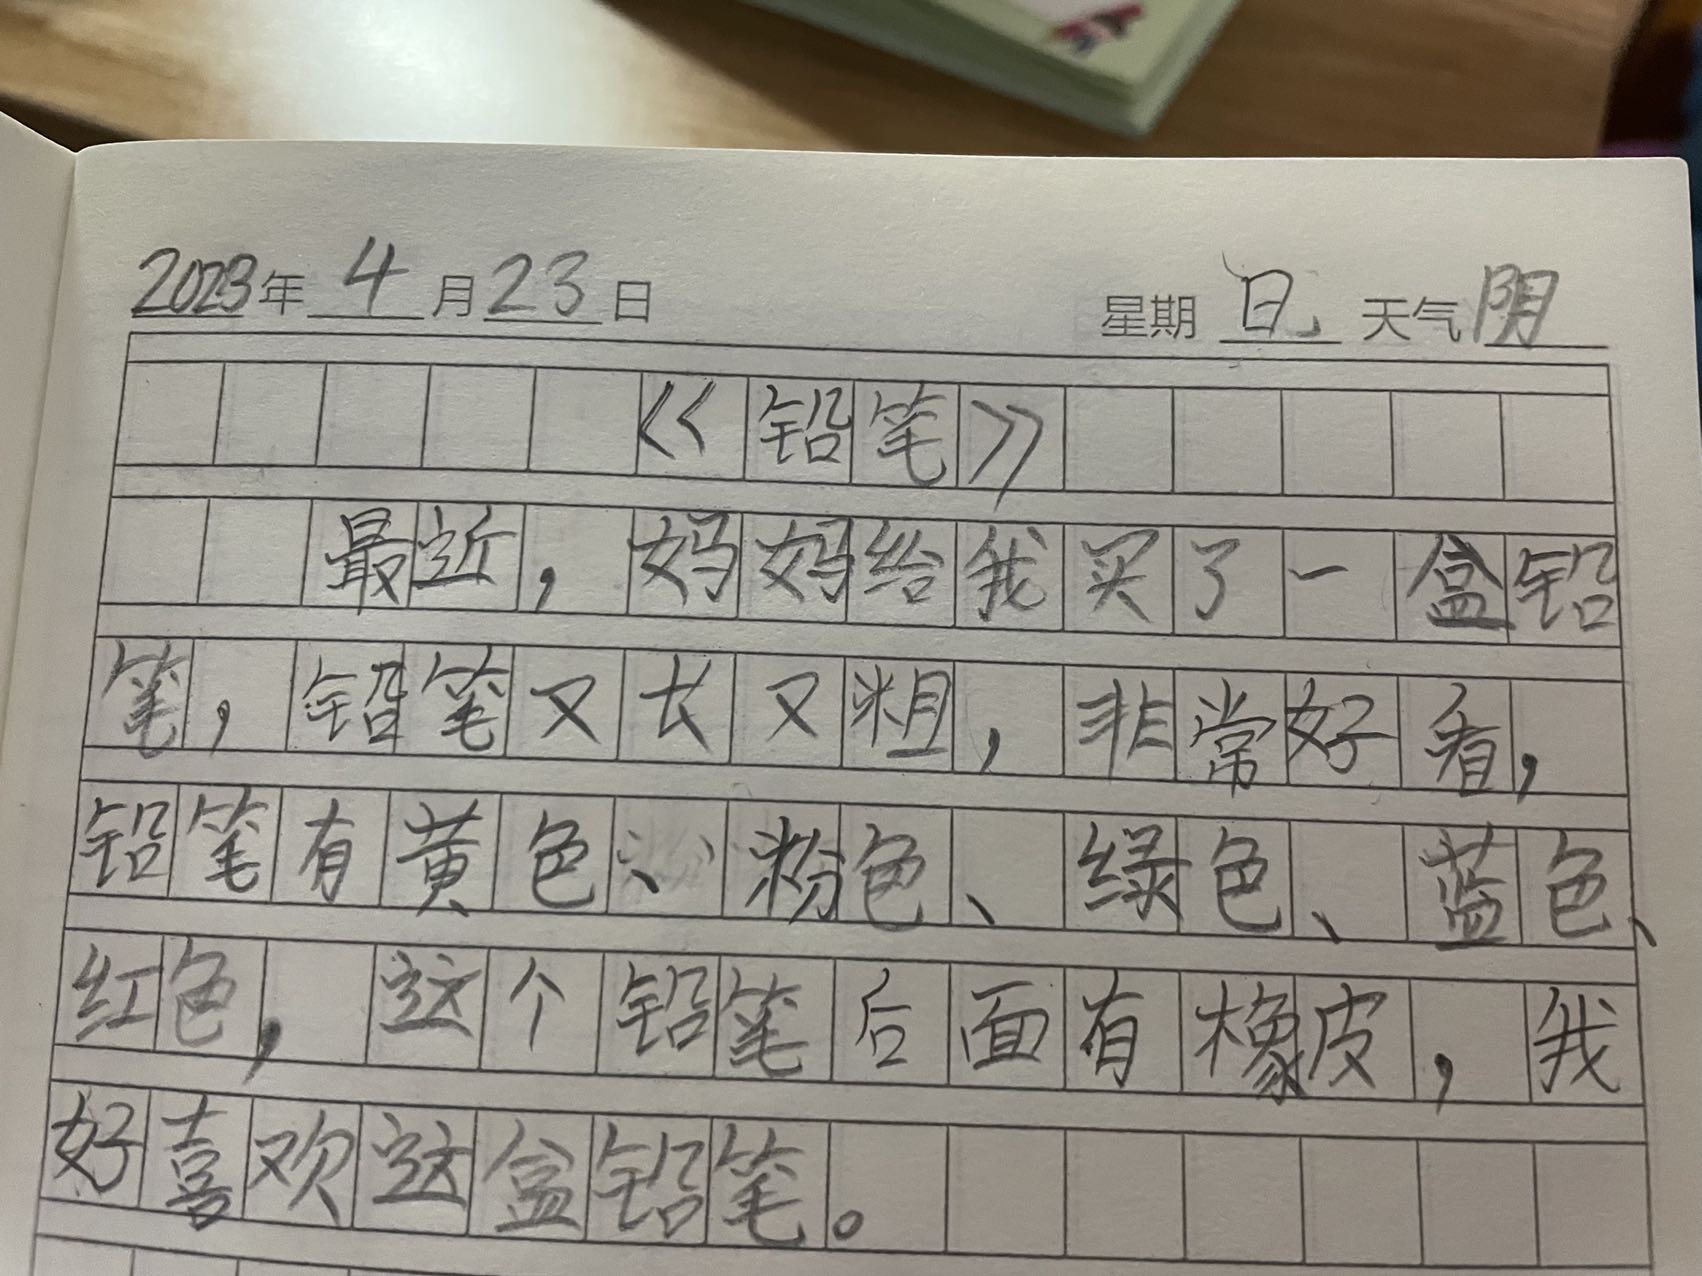 2023年 4 月 23 日 星期 日 天气 阴
《铅笔》
最近，妈妈给我买了一盒铅
笔，铅笔又长又粗，非常好看，
铅笔有黄色、粉色、绿色、蓝色、
红色，这个铅笔后面有橡皮，我
好喜欢这盒铅笔。